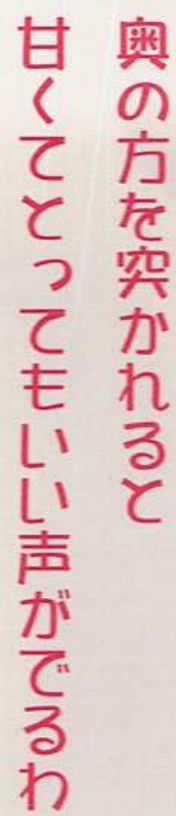 奥の方を突かれると
甘くてとってもいい声がでるわ